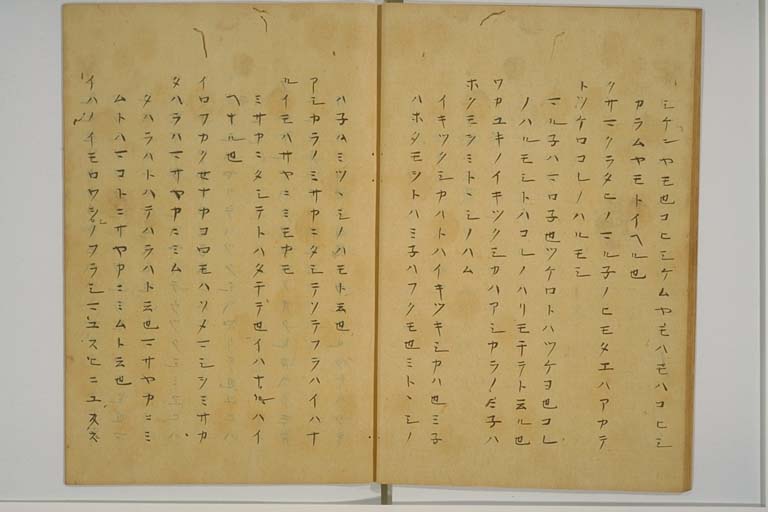 シケンヤモ也コヒシケムヤモハモハコヒシ
カラムヤモトイヘル也
クサマクラタヒノマル子ノヒモタエハアカテ
トツケロコレノハルモシ
マル子ハマロ子也ツケロトハツケヨ也コレ
ノハルモシトハコレノハリモテラト云ル也
ワカユキノイキツクシカハアシカラノ子ハ
ホクモシミトヽシノハム
イキツクシカハトハイキツキシカハ也ミ子
ハホタモシトハミ子ハフクモ也ミトヽシノ
ハ子ハミツヽシノハモト云也
アシカラノミサカニタシテソテフラハイハナ
ルイモハサヤニミモカモ
ミサカニタシテトハタテテ也イハナルハイ
ヘナル也
イロフカクセナカコロモハソメマシシミサカ
タハラハマサヤカニミム
タハラハトハテハラハト云也マサヤカニミ
ムトハマコトニサヤカニミムト云也
イハノイモロワシノフラシマユスヒニユスヒ